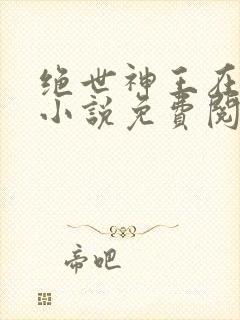 绝世神王在
小説免費閱
帝吧